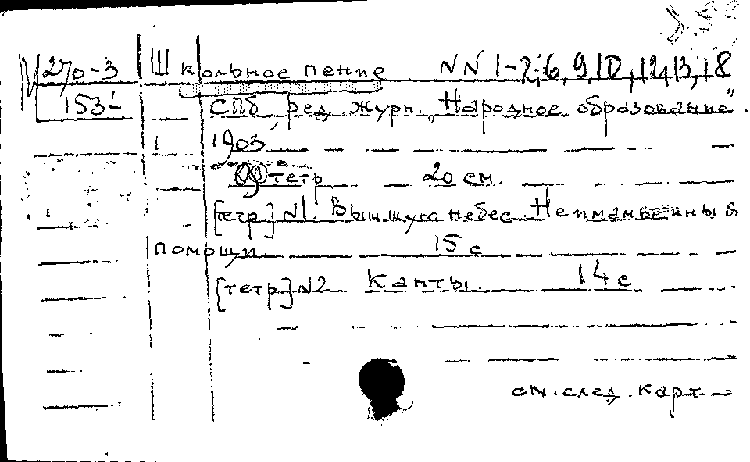 270-3 Школьное пение NN 1-2, 6, 9, 10, 12, 13, 18
153 СПб, ред. журн. „Народное образование".
1903
тетр 20 см.
[тетр] N1. небес
помощи 15 с
[тетр] N2 Канты. 14 с
см. след. карт